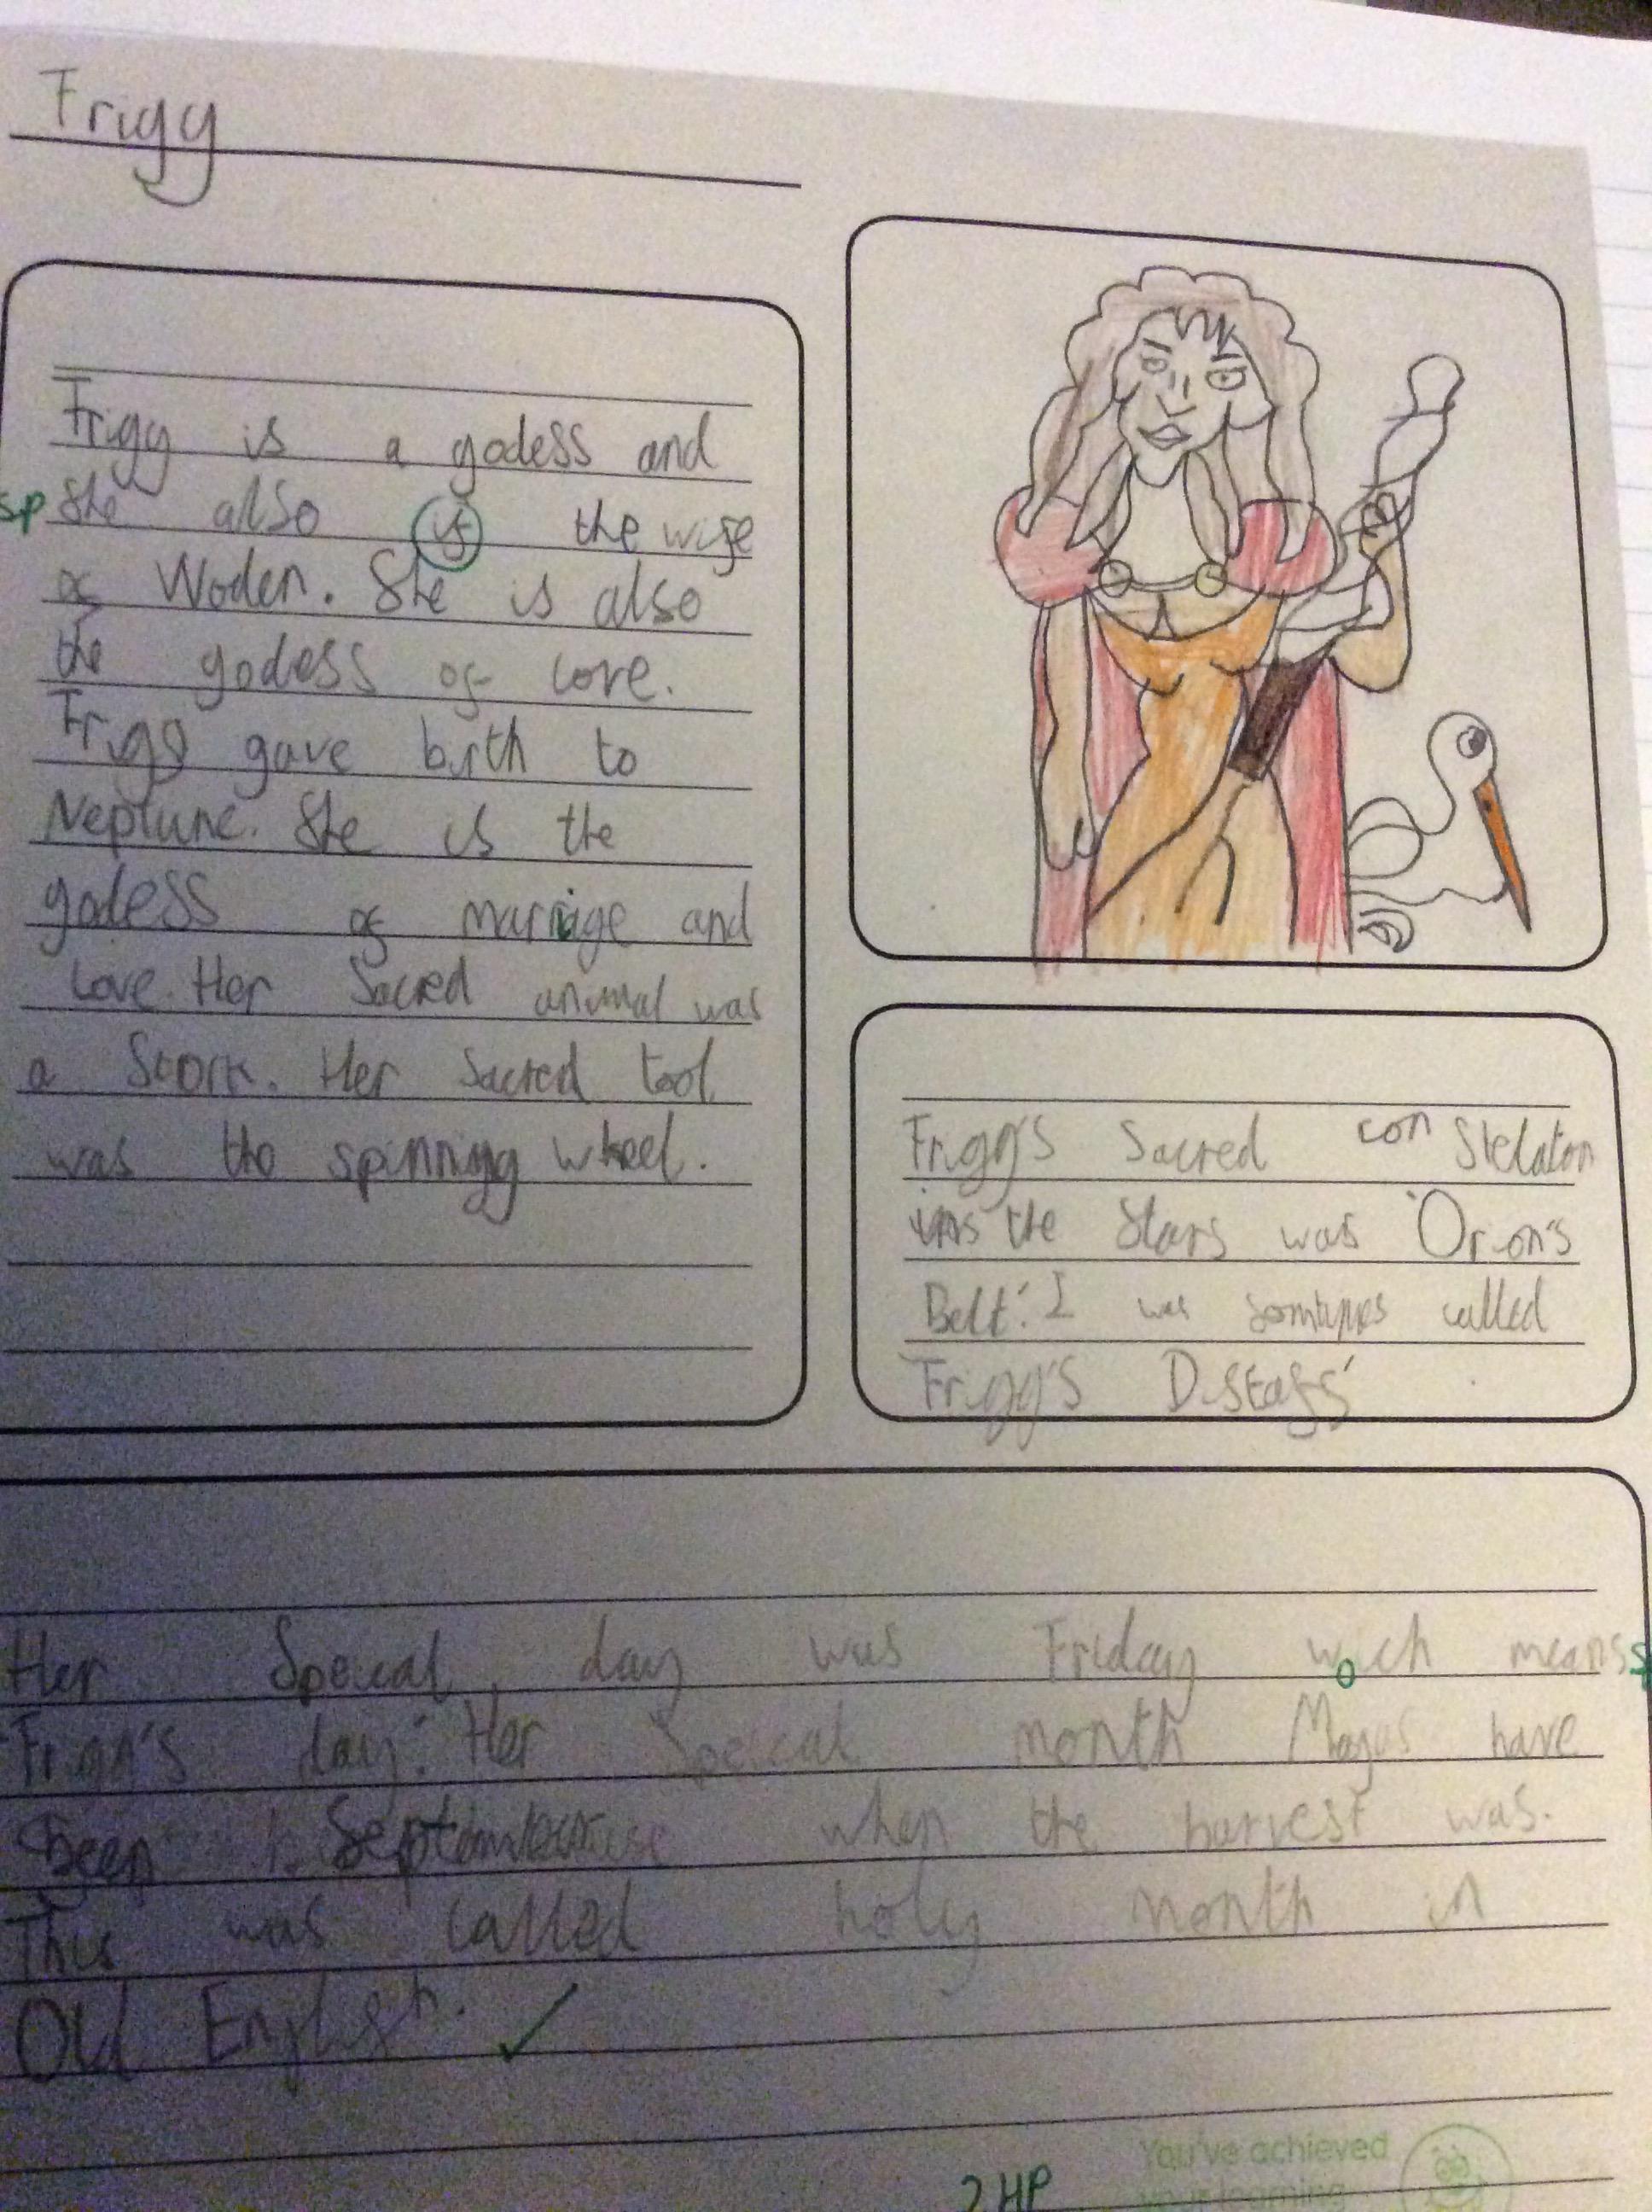 Frigg
Frigg is a godess and
sp She also is the wife
of Woden. She is also
the godess of love.
Frigg gave birth to
Neptune. She is the
godess of marriage and
love. Her Sacred animal was
a Stork. Her Sacred tool
was the spinning wheel.
Frigg's Sacred con Stelaton
in the Stars was 'Orion's
Belt'. I was somtimes called
Frigg's Distaff'
Her Speical day was Friday wich means
Frigg's day'. Her Speical month May have
been September when the harvest was.
This was called holy month in
Old English. ✓
2HP
You've achieved
your learning